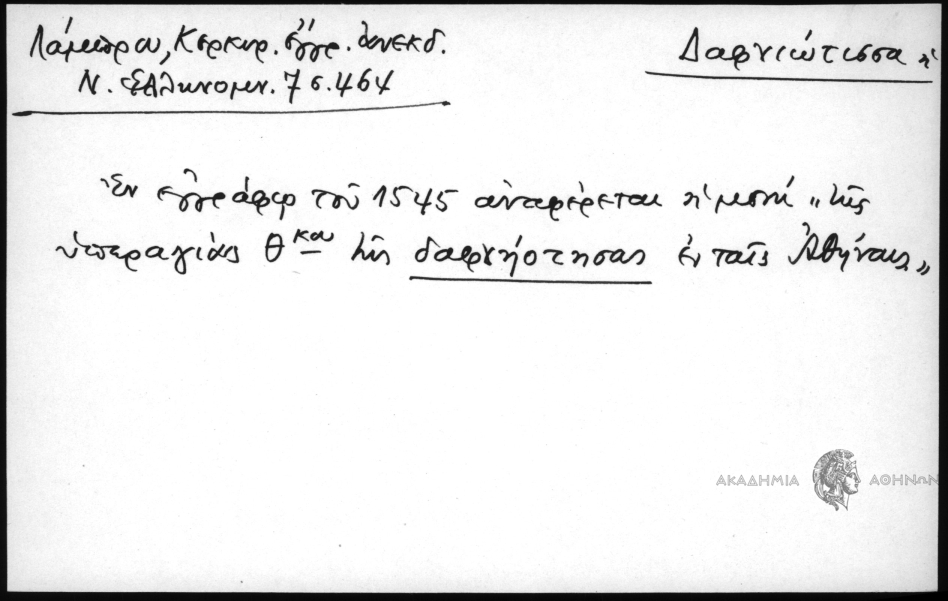 Λάμπρου, Κερκυρ. ἔγγρ. ἀνεκδ.
Ν. Ἑλληνομν. 7 σ. 464
Δαφνιώτισσα ἡ
Ἐν ἐγγράφῳ τοῦ 1545 ἀναφέρεται ἡ μονή „τῆς
ὑπεραγίας Θκου τῆς δαφνήοτησας ἐν ταῖς Ἀθήναις„
ΑΚΑΔΗΜΙΑ ΑΘΗΝΩΝ